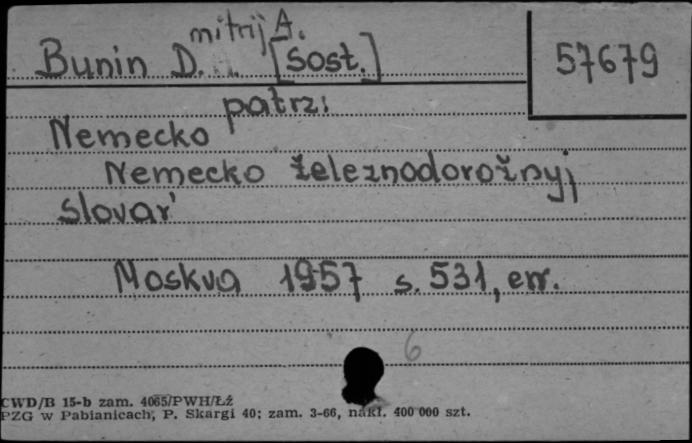 Bunin D.mitrij A. [Sost.] 57679
patrz:
Nemecko
Nemecko železnodorožnyj
slovar'
Moskva 1957 s. 531, err.
6
CWD/B 15-b zam. 4065/PWH/Łź
PZG w Pabianicach, P. Skargi 40; zam. 3-66, nakł. 400 000 szt.